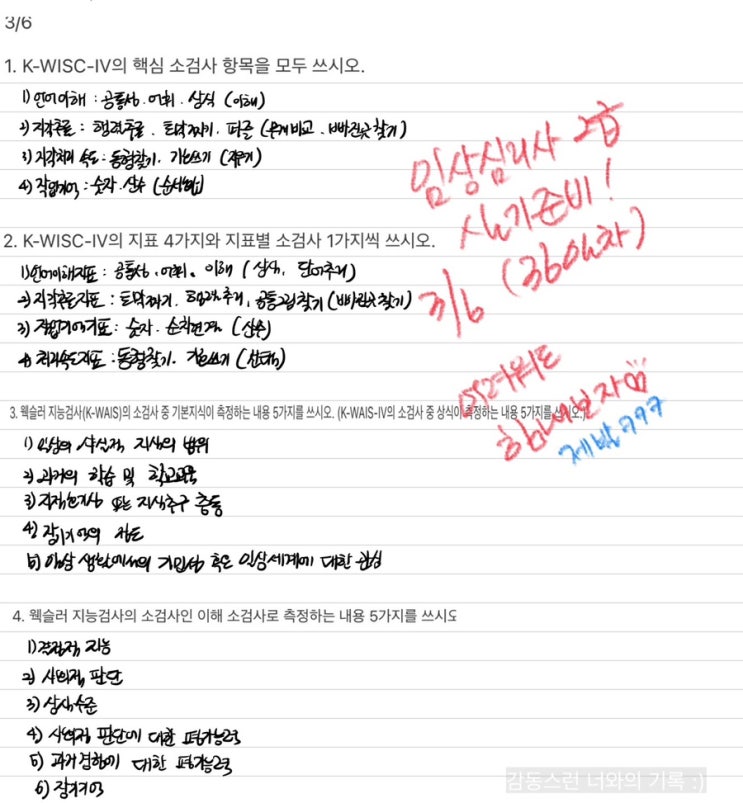 3/6
1. K-WISC-IV의 핵심 소검사 항목을 모두 쓰시오.
1) 언어이해 : 공통성 · 어휘 · 상식 (이해)
2) 지각추론 : 행렬추론 · 토막짜기 · 퍼즐 (무게비교 · 빠진곳 찾기)
3) 지각처리 속도 : 동형찾기 · 기호쓰기 (지우기)
4) 작업기억 : 숫자 · 산수 (순서화)
2. K-WISC-IV의 지표 4가지와 지표별 소검사 1가지씩 쓰시오.
1) 언어이해지표 : 공통성 · 어휘 · 이해 (상식, 단어추리)
2) 지각추론지표 : 토막짜기 · 행렬추리, 공통그림찾기 (빠진곳찾기)
3) 작업기억지표 : 숫자 · 순차연결 (산수)
4) 처리속도지표 : 동형찾기 · 기호쓰기 (선택)
3. 웩슬러 지능검사(K-WAIS)의 소검사 중 기본지식이 측정하는 내용 5가지를 쓰시오. (K-WAIS-IV의 소검사 중 상식이 측정하는 내용 5가지를 쓰시오.)
1) 일상의 사실적 지식의 범위
2) 과거의 학습 및 학교교육
3) 지적호기심 또는 지식추구 충동
4) 장기기억의 정도
5) 일상 생활에서의 기민성 혹은 일상세계에 대한 관심
4. 웩슬러 지능검사의 소검사인 이해 소검사로 측정하는 내용 5가지를 쓰시오
1) 결정적 지능
2) 사회적 판단
3) 상식수준
4) 사회적 판단에 대한 평가능력
5) 과거경험에 대한 평가능력
6) 장기기억
임상심리사 2급
실기준비!
3/6 (36일차)
어려워도
힘내보자
제발 ㄱㄱㄱ
감동스런 너와의 기록 :)